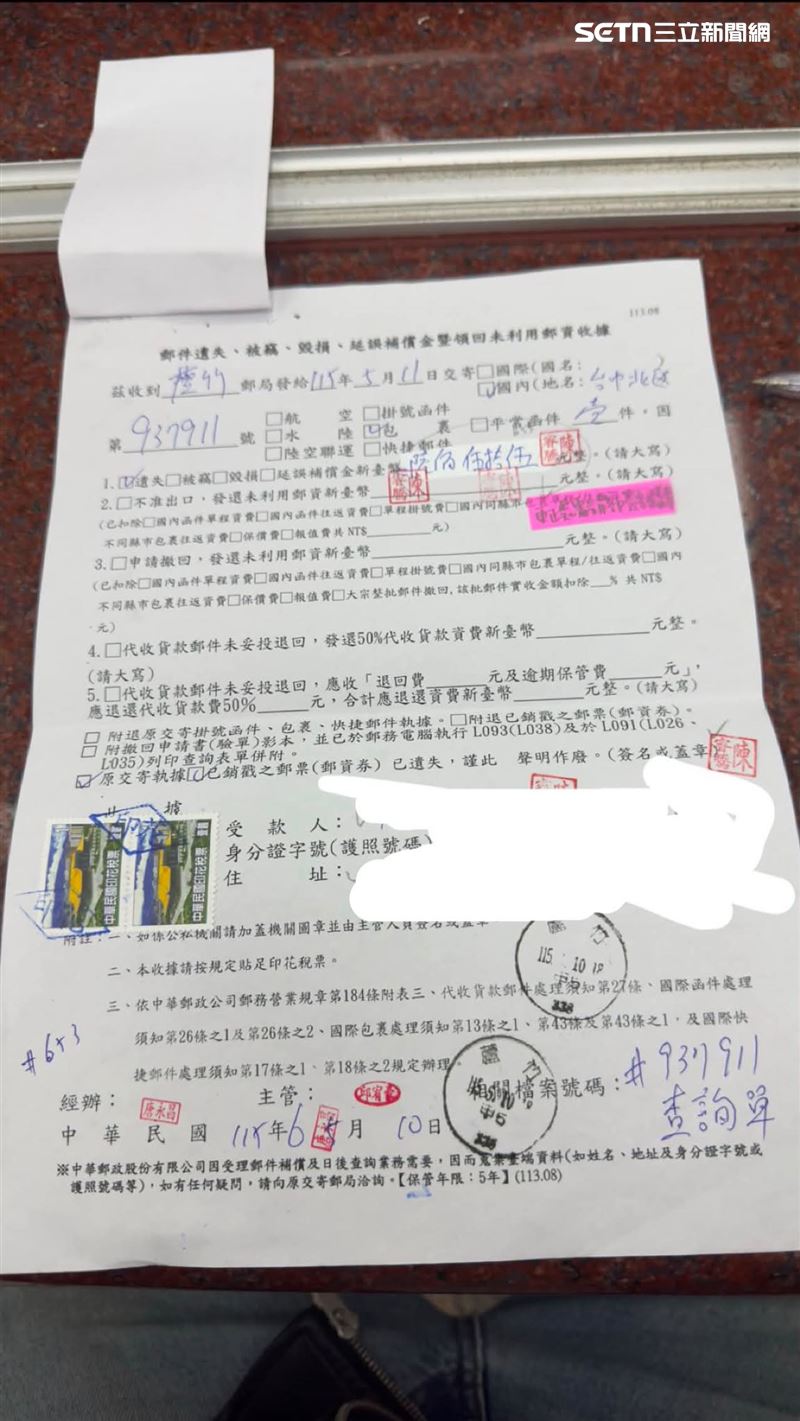 SETN三立新聞網
113.08
郵件遺失、被竊、毀損、延誤補償金暨領回未利用郵資收據
茲收到 郵局發給115年5月11日交寄□國際(國名： )
□國內(地名：台中北區
第937911號 □航空 □掛號函件
□水陸 □包裹 □平常函件 壹 件。因
□陸空聯運 □快捷郵件
1.□遺失□被竊□毀損□延誤補償金新臺幣陸佰伍拾伍元整。(請大寫)
2.□不准出口，發還未利用郵資新臺幣 元整。(請大寫)
(已扣除□國內函件單程資費□國內函件往返資費□單程掛號費□國內同縣市
不同縣市包裹往返資費□保價費□報值費共NT$ 元)
3.□申請撤回，發還未利用郵資新臺幣 元整。(請大寫)
(已扣除□國內函件單程資費□國內函件往返資費□單程掛號費□國內同縣市包裹單程/往返資費□國內
不同縣市包裹往返資費□保價費□報值費□大宗整批郵件撤回,該批郵件實收金額扣除 % 共 NT$
元)
4.□代收貨款郵件未妥投退回，發還50%代收貨款資費新臺幣 元整。
(請大寫)
5.□代收貨款郵件未妥投退回，應收「退回費 元及逾期保管費 元」，
應退還代收貨款費50% 元，合計應退還資費新臺幣 元整。(請大寫)
□ 附退原交寄掛號函件、包裹、快捷郵件執據。□附退已銷戳之郵票(郵資券)。
□ 附撤回申請書(驗單)影本，並已於郵務電腦執行L093(L038)及於L091(L026、
L035)列印查詢表單併附。
☑ 原交寄執據☑已銷戳之郵票(郵資券)已遺失，謹此 聲明作廢。(簽名或蓋章)
陳
據
受款人：
身分證字號(護照號碼)
住址：
中華民國印花稅票
中華民國印花稅票
附註：一、如係公私機關請加蓋機關圖章並由主管人員簽名或蓋章
二、本收據請按規定貼足印花稅票。
三、依中華郵政公司郵務營業規章第184條附表三、代收貨款郵件處理須知第27條、國際函件處理
須知第26條之1及第26條之2、國際包裹處理須知第13條之1、第43條及第43條之1，及國際快
捷郵件處理須知第17條之1、第18條之2規定辦理。
#6x3
經辦：唐永昌 主管： 相關檔案號碼：#937911
查詢單
中華民國115年6月10日
※中華郵政股份有限公司因受理郵件補償及日後查詢業務需要，因而蒐集臺端資料(如姓名、地址及身分證字號或
護照號碼等)，如有任何疑問，請向原交寄郵局洽詢。【保管年限：5年】(113.08)